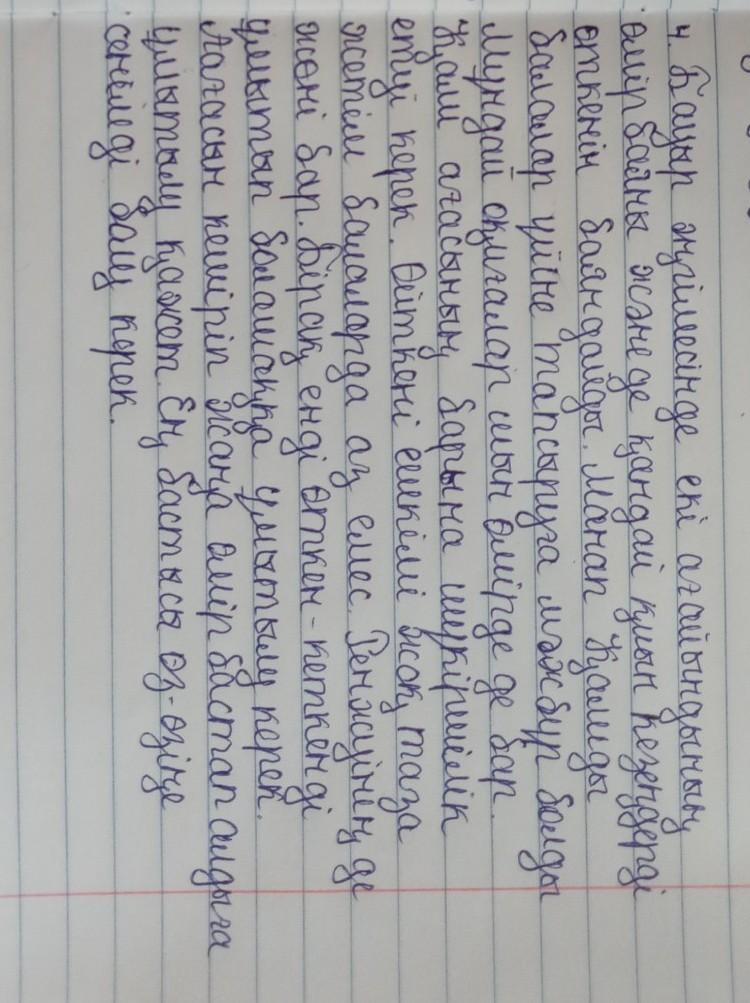 4. Бауыр әңгімесінде екі ағайындының
өмір баяны және де қандай қиын кезеңдерді
өткенін баяндалды. Манап Қалиды
балалар үйіне тапсыруға мәжбүр болды
Мұндай оқиғалар шын өмірде де бар.
Қали ағасының барына шүкіршілік
ету керек. Өйткені ешкімі жоқ таза
жетім балаларда аз емес. Ренжуінің де
жөні бар. Бірақ, енді өткен-кеткенді
ұмытып болашаққа ұмытылу керек.
Ағасын кешіріп жаңа өмір бастап алдыға
ұмытылу қажет. Ең бастысы өз-өзіңе
сенімді болу керек.